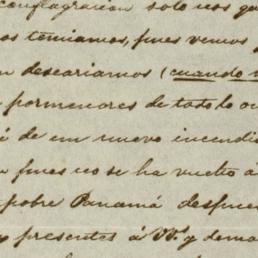 conflagracion solo nos qu
os temiamos, pues vemos
deseariamos (cuando
pormenores de todo lo oc
de un nuevo incendio
pues no se ha vuelto á
pobre Panamá despues
presentes á VV. y dema